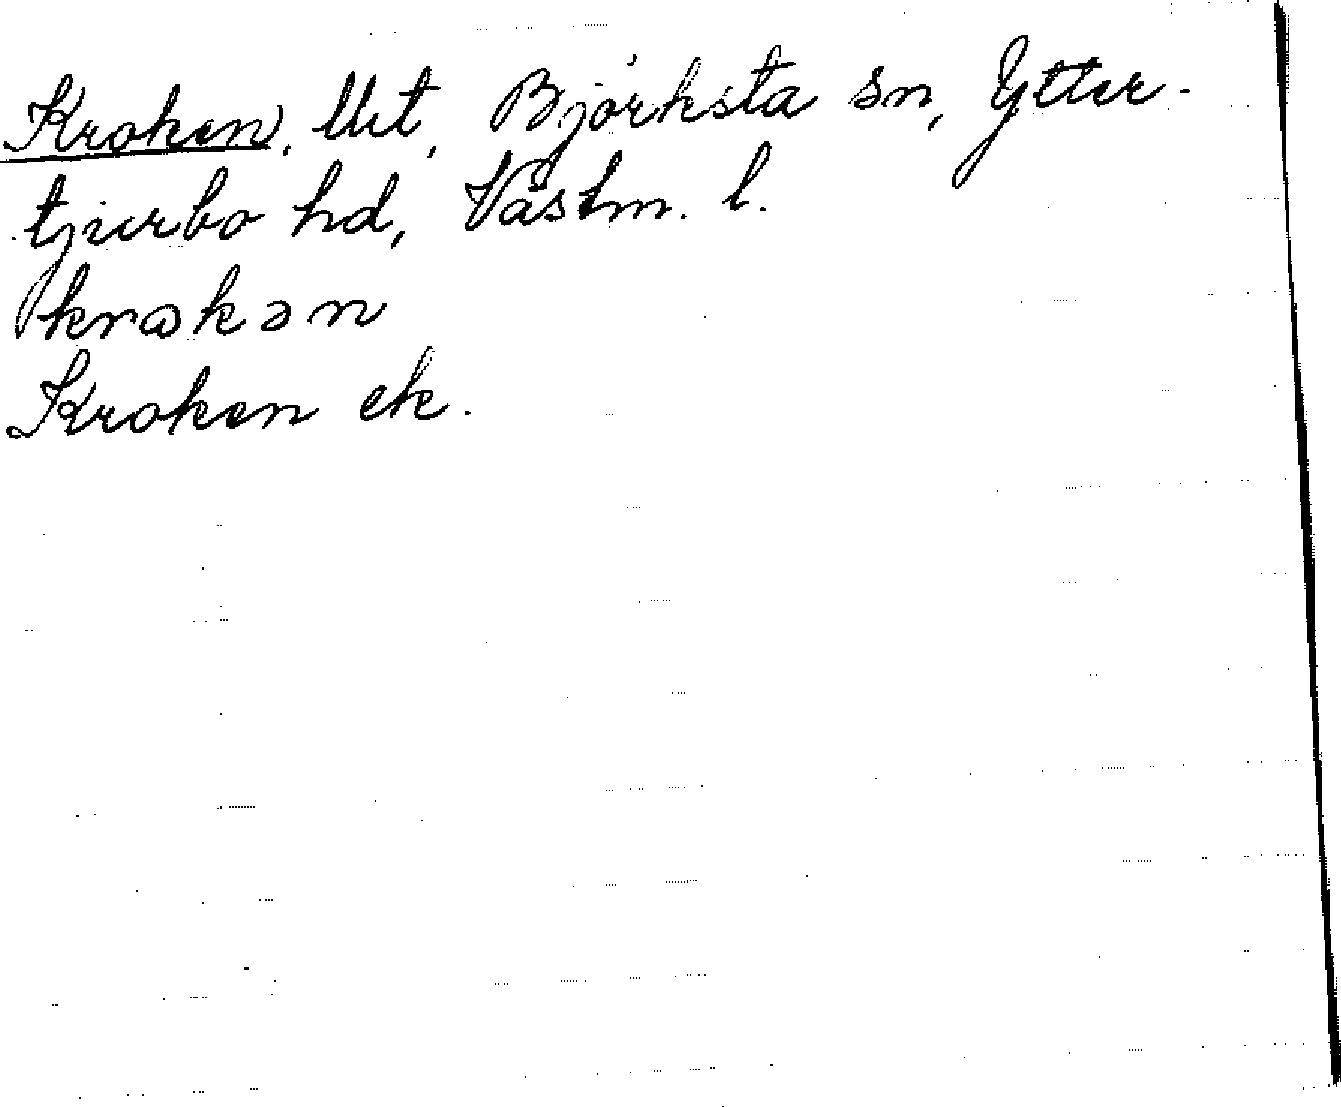 Kroken, Utt, Björksta sn, Ytter-
tjurbo hd, Västm. l.
krɷkən
Kroken ek.